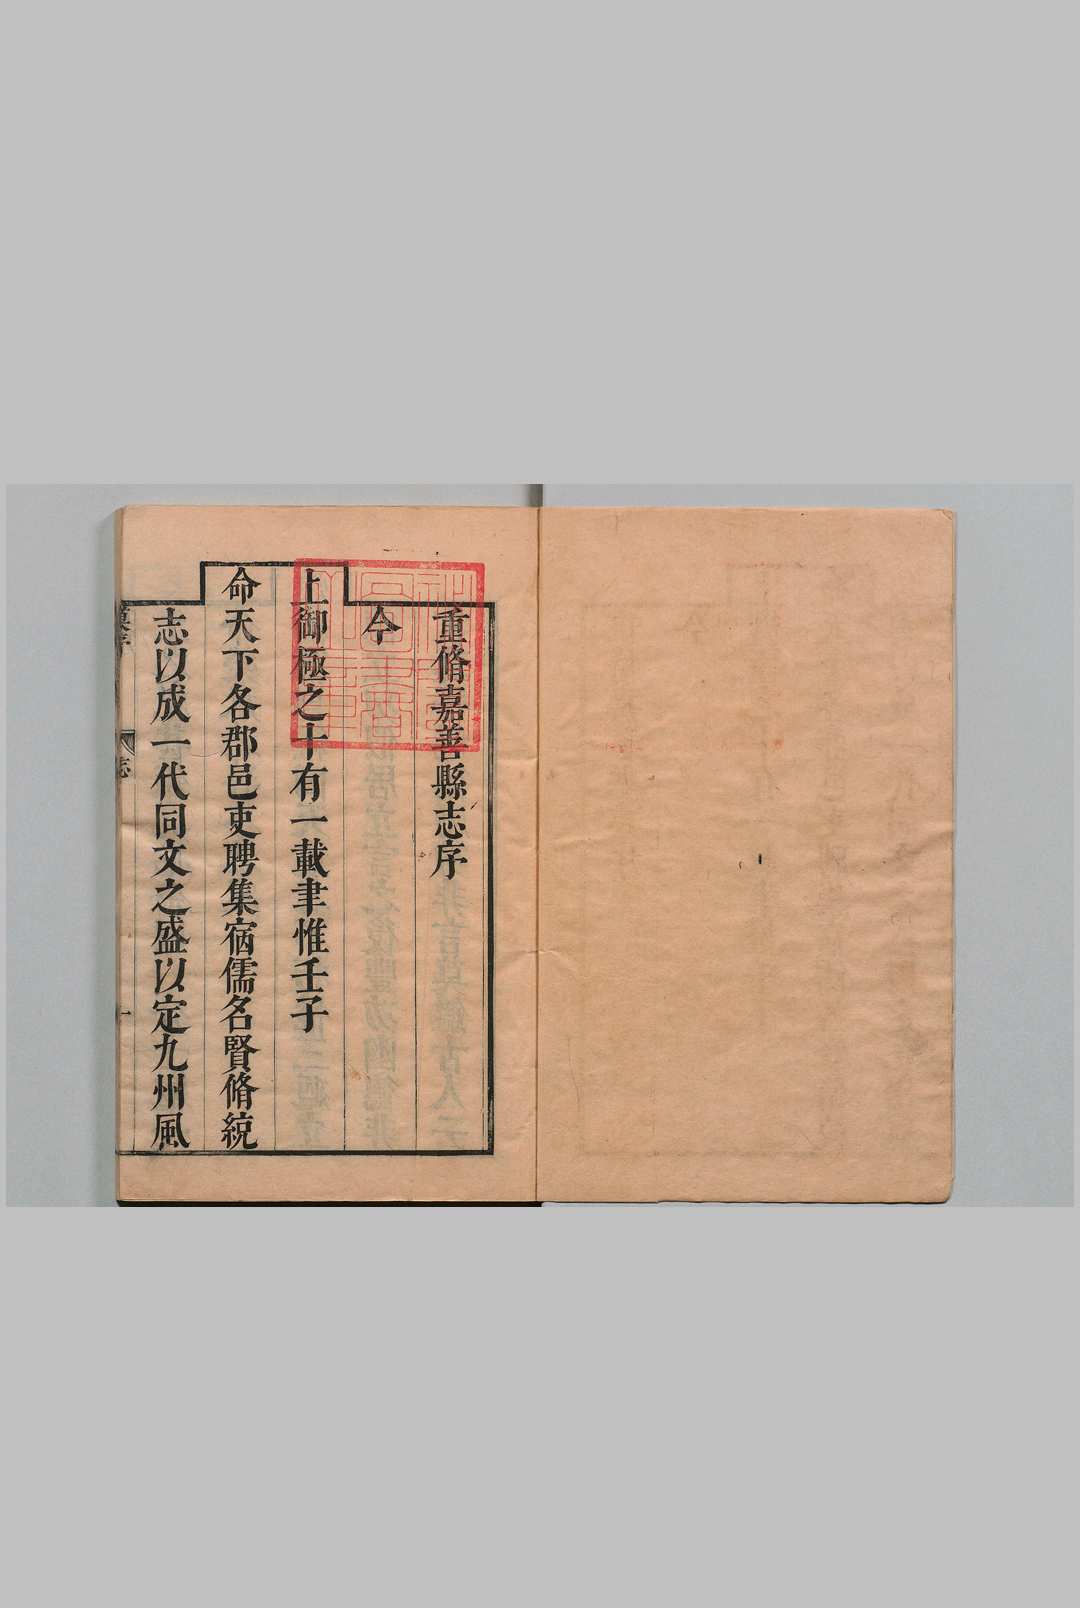 重脩嘉善縣志序
今
上御極之十有一載聿惟壬子
命天下各郡邑吏聘集宿儒名賢脩統
志以成一代同文之盛以定九州風
志
一